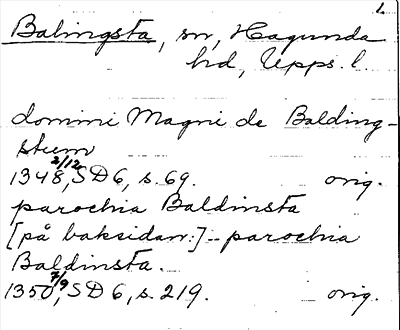 1.
Balingsta, sn, Hagunda
hd, Upps. l.
domini Magni de Balding-
stum
2/12
1348, SD 6, s. 69. orig.
parochia Baldinsta
[på baksidan:] parochia
Baldinsta.
7/9
1350, SD 6, s. 219. orig.